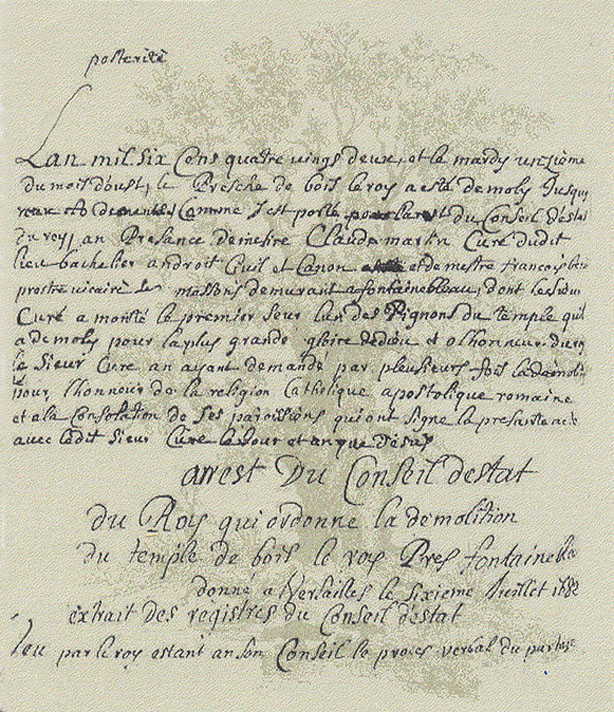 posterité
Lan mil six Cens quatre vingt deux, et le mardy unzieme
du mois d'oust, le Presche de bois le roy a esté demoly Jusqu
Comme Jl est porté par larest du Conseil d'estat
du roy, an Presance de mestre Claude martin Curé dudit
lieu bachelier an droit Civil et Canon et de mestre francois
prestre vicaire massons demurant a fontainebleau, dont le sieur
Curé a monté le premier sour lun des Pignons du temple quil
a demoly pour la plus grande gloire de dieu et o lhonneur du
le Sieur Cure an ayant demandé par plusieurs fois la demoli
pour, lhonneur de la religion Catholique apostolique romaine
et a la Consolation de ses paroissiens qui ont signe la presante acte
avec ledit Sieur Cure le Jour et an que desus
arrest Du Conseil destat
du Roy qui ordonne la demolition
du temple de bois le roy Pres fontaine
donne a Versailles le sixieme Juillet 1682
extrait des registres du Conseil d'estat
Veu par le roy estant an son Conseil le proces verbal du partage